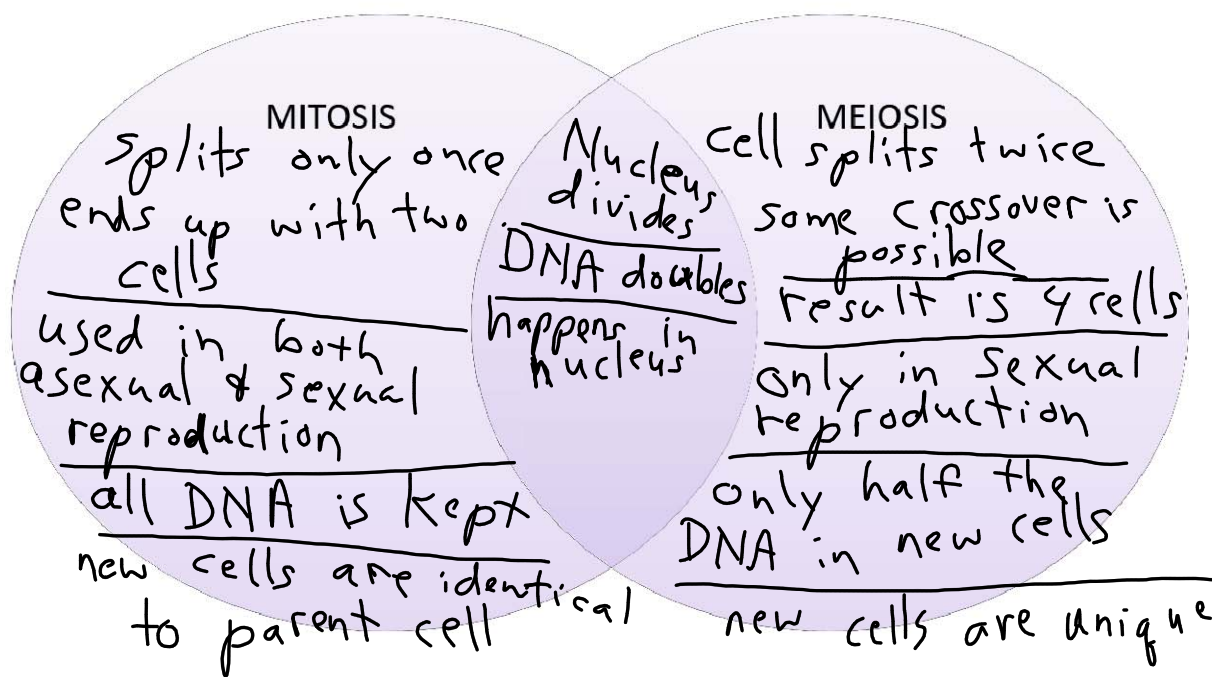 MITOSIS
splits only once
ends up with two
cells
used in both
asexual & sexual
reproduction
all DNA is kept
new cells are identical
to parent cell
Nucleus
divides
DNA doubles
happens in
nucleus
MEIOSIS
cell splits twice
some crossover is
possible
result is 4 cells
only in sexual
reproduction
only half the
DNA in new cells
new cells are unique